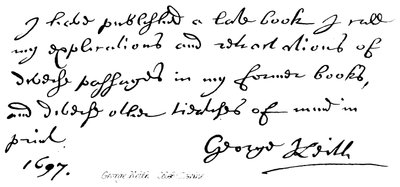 I have published a late book I call
my explications and retractations of
diverse passages in my former books,
and diverse other treatises of mine in
print.
1697.
George Keith
George Keith